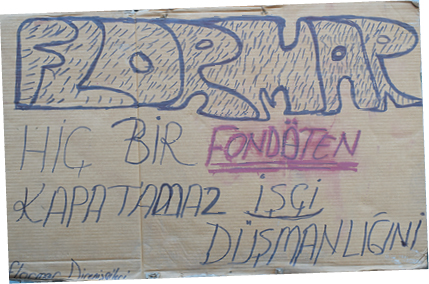 FLORMAR
HİÇ BİR FONDÖTEN
KAPATAMAZ İŞÇİ
DÜŞMANLIĞINI
Flormar Direnişçileri